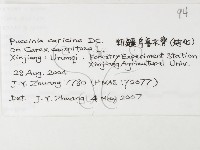 94
Puccinia caricina DC. 新疆乌鲁木齐
On Carex
Xinjiang: Urumqi. Forestry Experiment Station
Xinjiang Agricultural Univ.
28 Aug. 2001
J.-Y. Zhuang
Det. J.-Y. Zhuang 4 May 2007